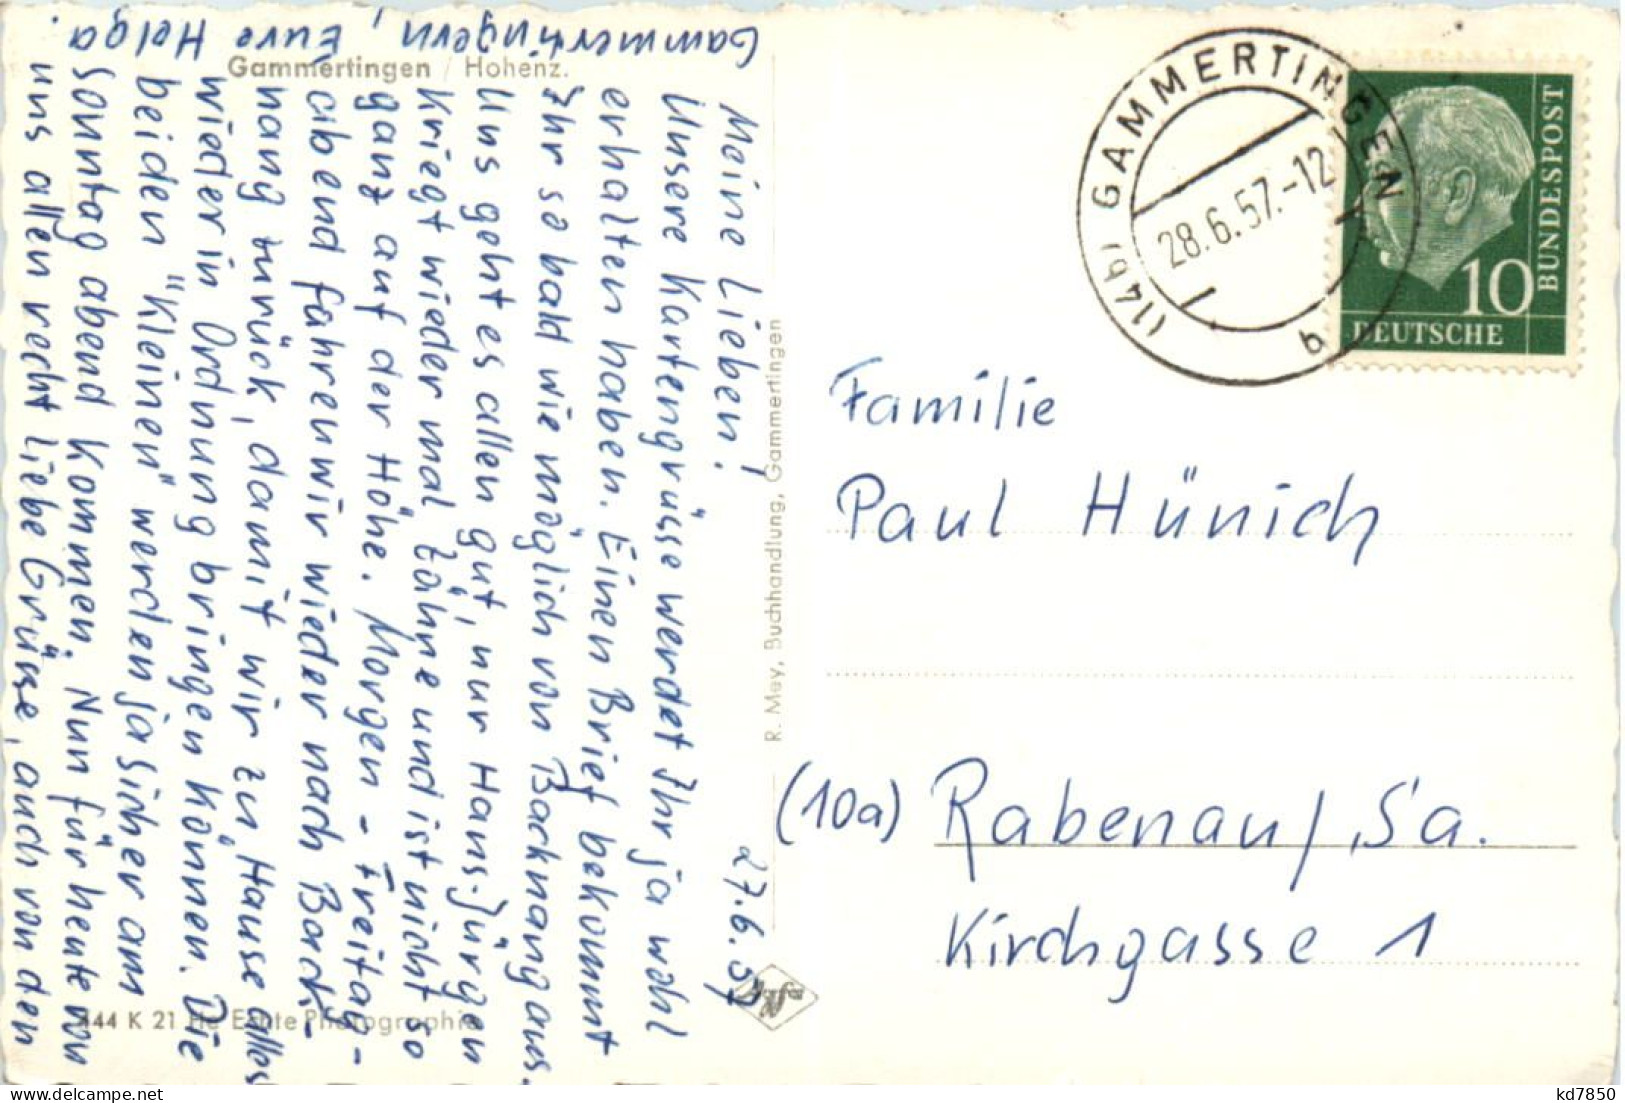 27.6.57
Meine Lieben!
Unsere Kartengrüsse werdet Ihr ja wohl
erhalten haben. Einen Brief bekommt
Ihr so bald wie möglich von Backnang aus.
Uns geht es allen gut, nur Hans-Jürgen
kriegt wieder mal Zähne und ist nicht so
ganz auf der Höhe. Morgen - Freitag -
abend fahren wir wieder nach Back-
nang zurück, damit wir zu Hause alles
wieder in Ordnung bringen können. Die
beiden "Kleinen" werden ja sicher am
Sonntag abend kommen. Nun für heute von
uns allen recht liebe Grüsse, auch von den
Gammertingern, Eure Helga
Gammertingen / Hohenz.
R. Mey, Buchhandlung, Gammertingen
444 K 21 He Echte Photographie
(14b) GAMMERTINGEN
28.6.57.-12
b
BUNDESPOST
10
DEUTSCHE
Familie
Paul Hünich
(10a) Rabenau/Sa.
Kirchgasse 1
kd7850